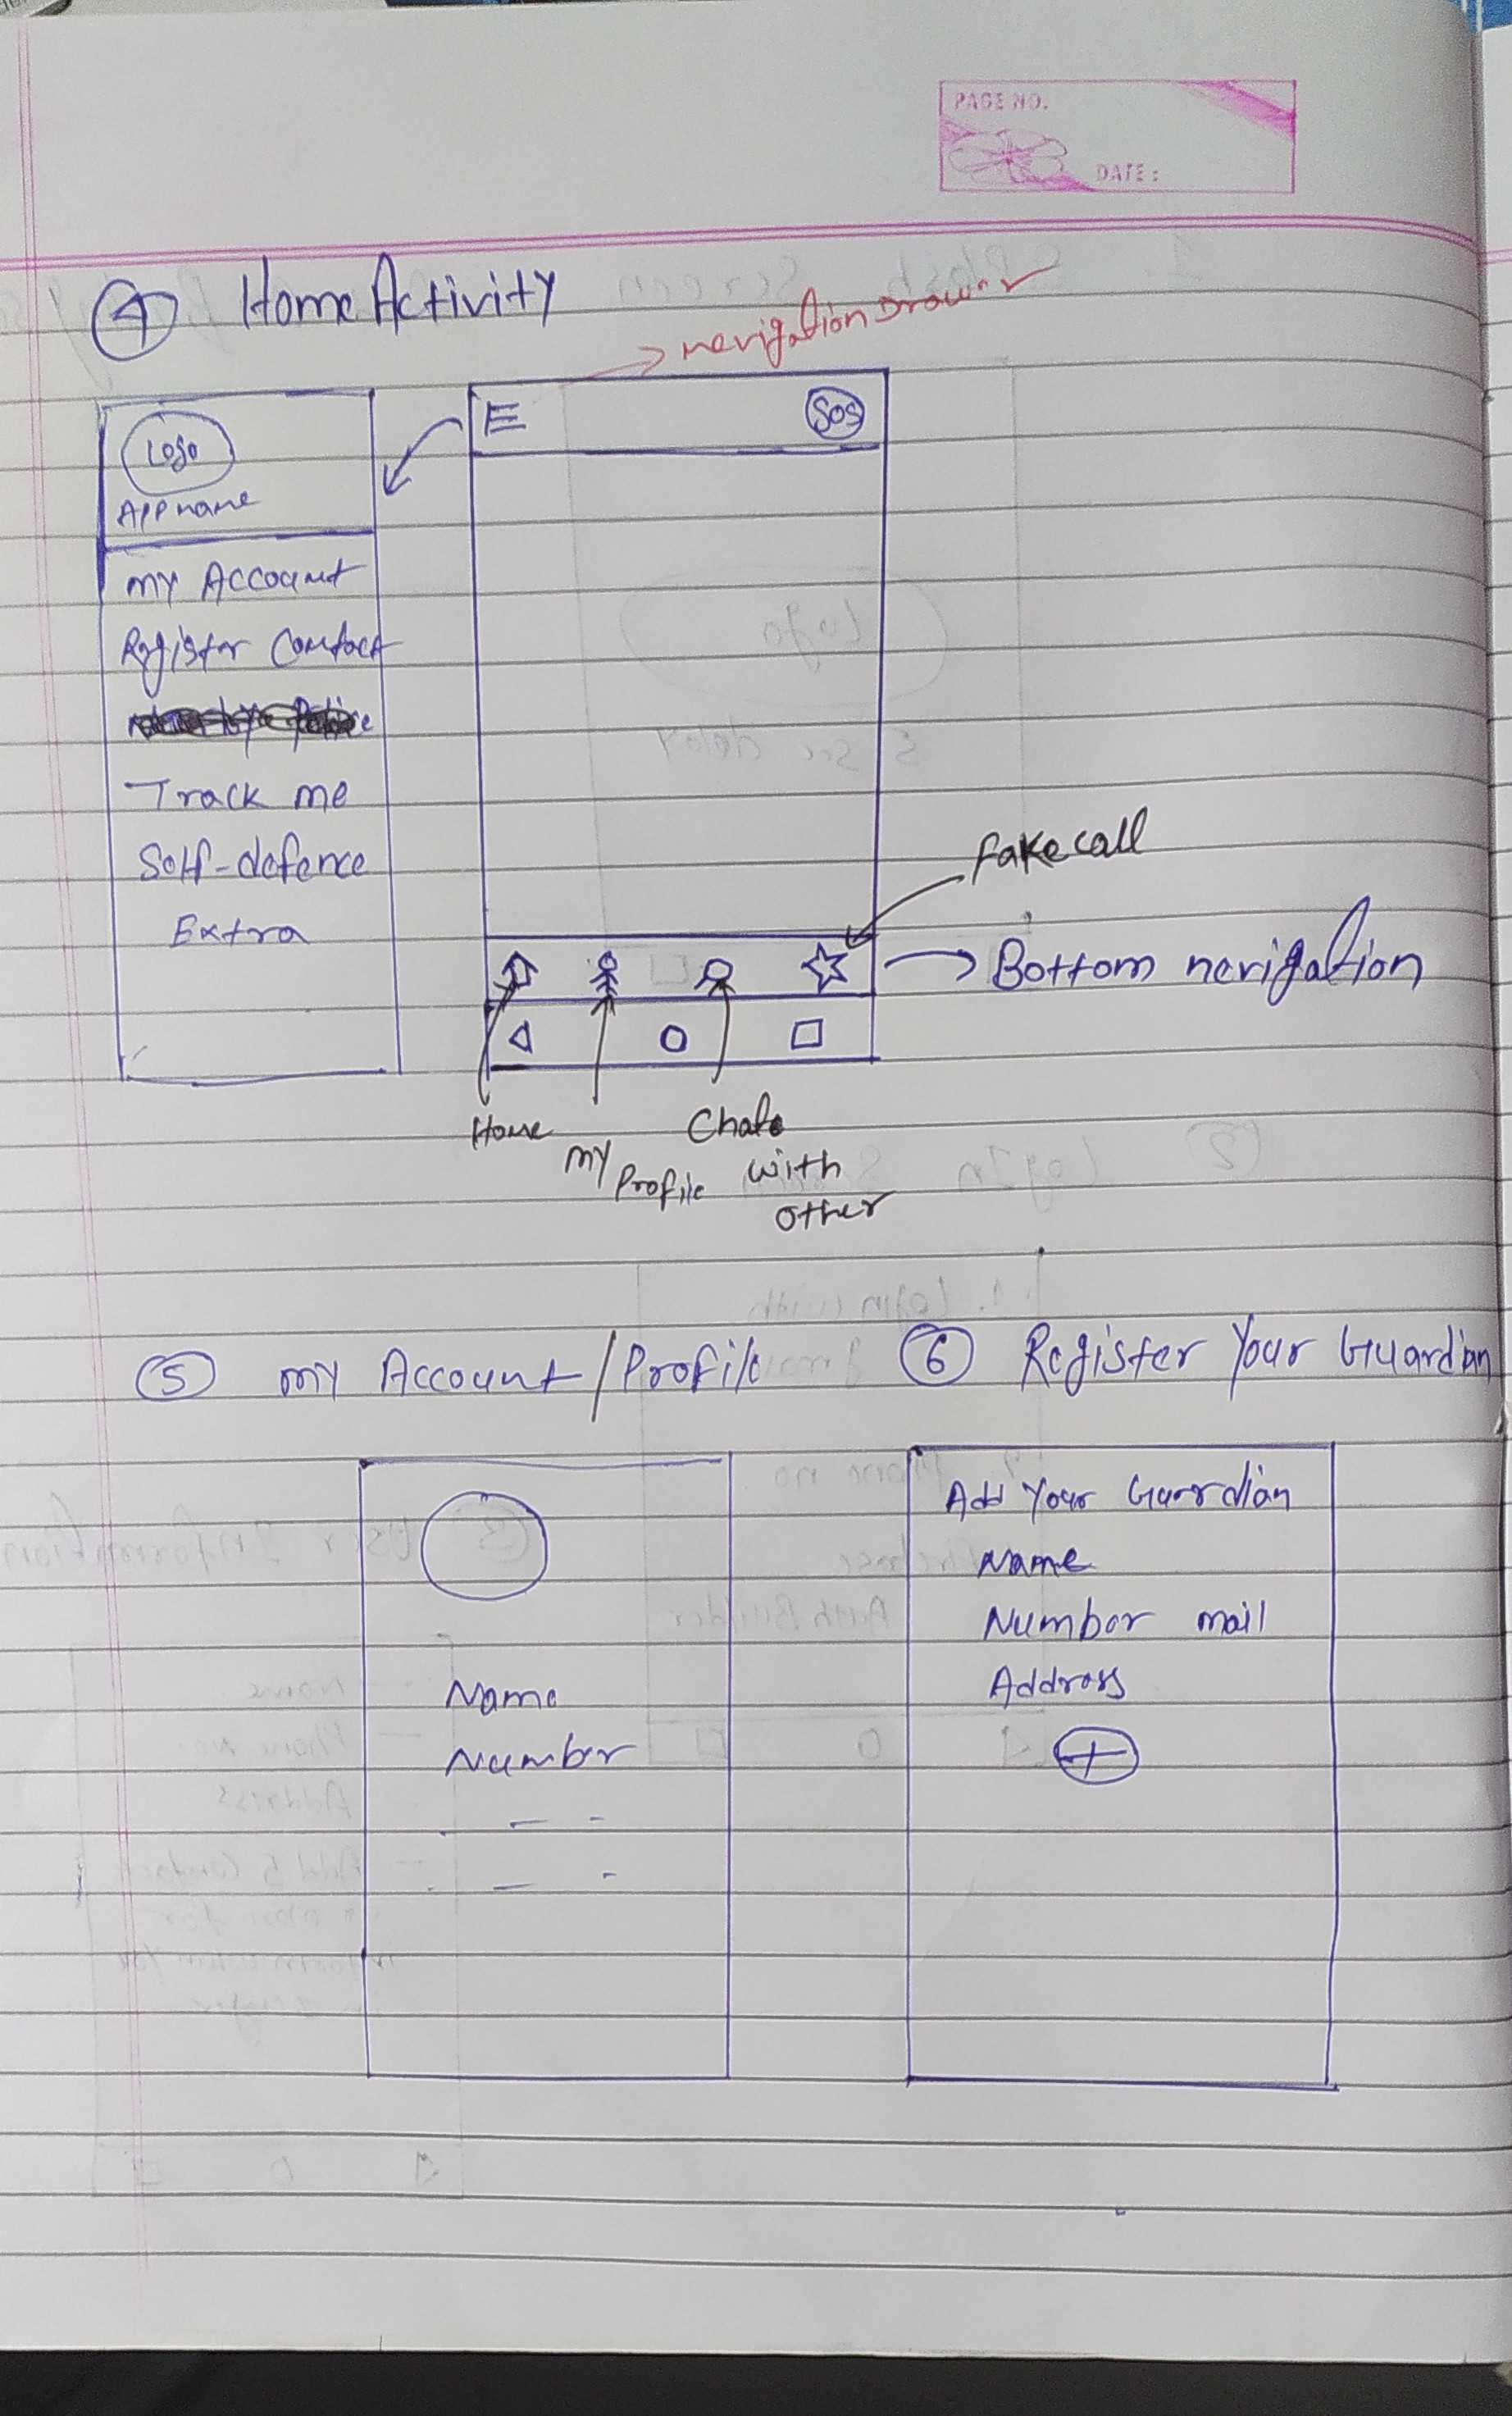 PAGE NO.
DATE :
④ Home Activity
navigation Drawer
Logo
APP name
E
SOS
my Account
Register Contact
Track me
Self-defence
Extra
fake call
Bottom navigation
Home
my Profile
Chat with other
⑤ my Account/Profile
⑥ Register Your Guardian
Name
Number
Add Your Guardian
Name
Number mail
Address
+